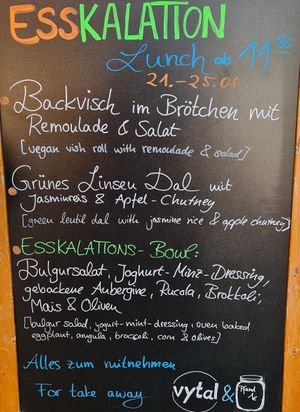 ESSKALATION
Lunch ab 11³⁰
21.-25.08
Backvisch im Brötchen mit
Remoulade & Salat
[vegan vish roll with remoulade & salad]
Grünes Linsen Dal mit
Jasminreis & Apfel-Chutney
[green lentil dal with jasmine rice & apple chutney]
ESSKALATIONS-Bowl:
Bulgursalat, Joghurt-Minz-Dressing,
gebackene Aubergine, Rucola, Brokkoli,
Mais & Oliven
[bulgur salad, yogurt-mint-dressing, oven baked
eggplant, arugula, broccoli, corn & olives]
Alles zum mitnehmen
For take away
vytal & Pfand